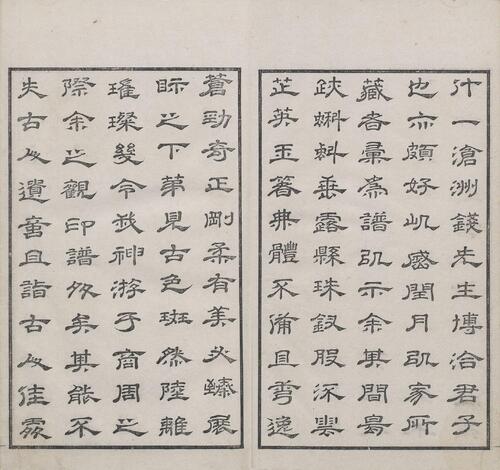 什一滄洲錢先生博洽君子
也亦頗好此歲閏月以家所
藏者彙為譜以示余其間鳥
跡蝌蚪垂露縣珠釵股深雲
芝英玉箸無體不備且逸
蒼勁奇正剛柔有美必臻展
眎之下第見古色斑然陸離
璀璨幾令我神游于商周之
際余之觀印譜多矣其能不
失古人遺意且詣古人佳處